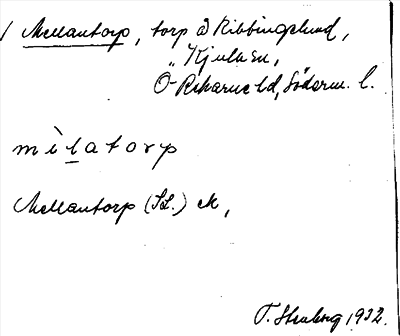 / Mellantorp, torp å Ribbingelund,
" Kjula sn,
Ö-Rekarne hd, Söderm. l.
mìlatorp
Mellantorp (St.) ek,
1932.